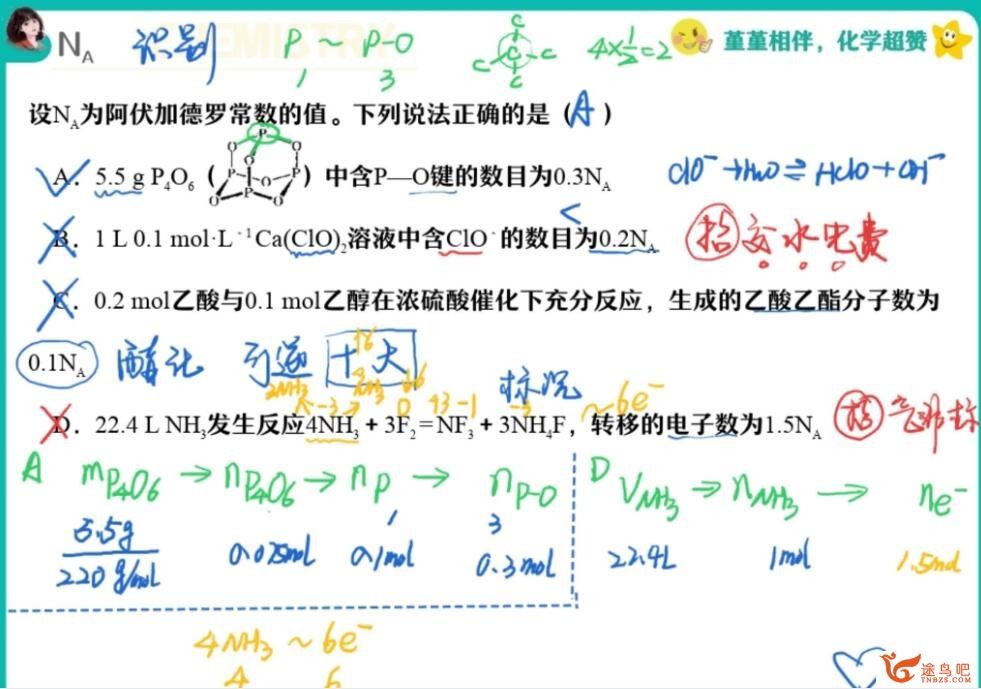 N_A 识别 P ~ P-O 4×1/2=2 堇堇相伴，化学超赞
1 3
设N_A为阿伏加德罗常数的值。下列说法正确的是（A）
A. 5.5 g P₄O₆（）中含P—O键的数目为0.3N_A ClO⁻+H₂O⇌HClO+OH⁻
<
B. 1 L 0.1 mol·L⁻¹Ca(ClO)₂溶液中含ClO⁻的数目为0.2N_A 水电费
C. 0.2 mol乙酸与0.1 mol乙醇在浓硫酸催化下充分反应，生成的乙酸乙酯分子数为
0.1N_A 酯化 可逆 十大
标况 ~6e⁻
D. 22.4 L NH₃发生反应4NH₃ + 3F₂ = NF₃ + 3NH₄F，转移的电子数为1.5N_A
A m P₄O₆ → n P₄O₆ → n P → n P-O D V NH₃ → n NH₃ → n e⁻
1 3
5.5g
220 g/mol 0.025mol 0.1mol 0.3mol 22.4L 1mol 1.5mol
4NH₃ ~ 6e⁻
4 6
途鸟吧
TNBZS.COM